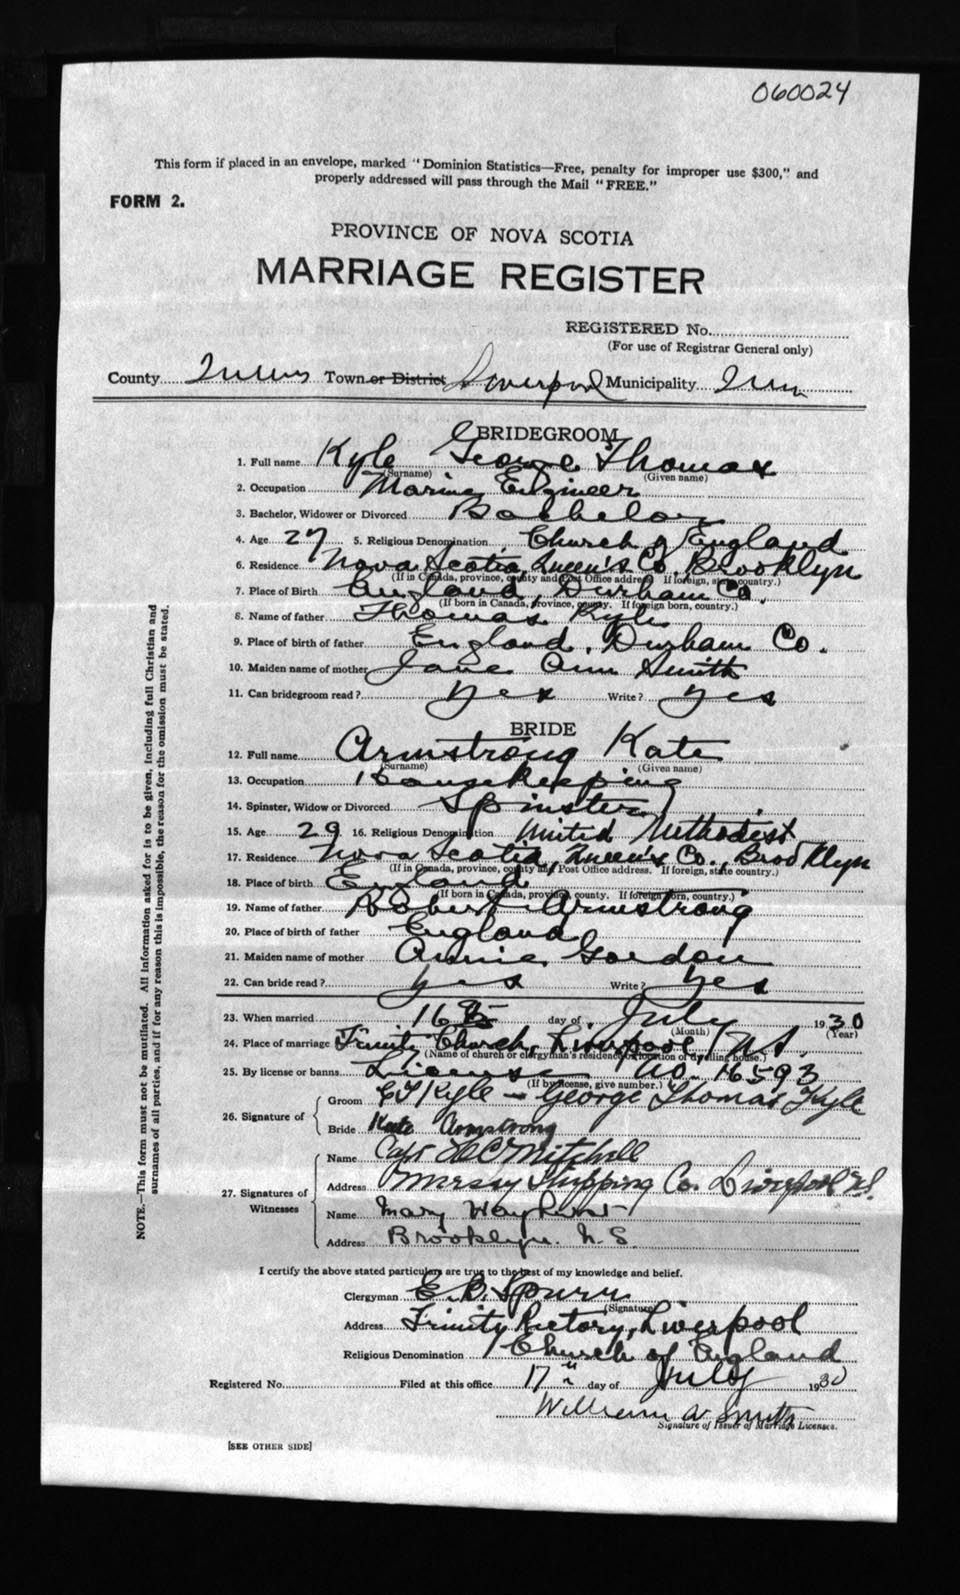 060024
This form if placed in an envelope, marked "Dominion Statistics—Free, penalty for improper use $300," and
properly addressed will pass through the Mail "FREE."
FORM 2.
PROVINCE OF NOVA SCOTIA
MARRIAGE REGISTER
REGISTERED No.
(For use of Registrar General only)
County Queens Town or District Liverpool Municipality
BRIDEGROOM
1. Full name Kyle George Thomas
(Surname) (Given name)
2. Occupation Marine Engineer
3. Bachelor, Widower or Divorced Bachelor
4. Age 27 5. Religious Denomination Church of England
6. Residence Nova Scotia, Queen's Co., Brooklyn
(If in Canada, province, county and Post Office address. If foreign, state country.)
7. Place of Birth England, Durham Co.
(If born in Canada, province, county. If foreign born, country.)
8. Name of father Thomas Kyle
9. Place of birth of father England, Durham Co.
10. Maiden name of mother Jane Ann Smith
11. Can bridegroom read? Yes Write? Yes
BRIDE
12. Full name Armstrong Kate
(Surname) (Given name)
13. Occupation Housekeeping
14. Spinster, Widow or Divorced Spinster
15. Age 29 16. Religious Denomination United Methodist
17. Residence Nova Scotia, Queen's Co., Brooklyn
(If in Canada, province, county and Post Office address. If foreign, state country.)
18. Place of birth England
(If born in Canada, province, county. If foreign born, country.)
19. Name of father Robert Armstrong
20. Place of birth of father England
21. Maiden name of mother Annie Gordon
22. Can bride read? Yes Write? Yes
23. When married 16th day of July 1930
(Month) (Year)
24. Place of marriage Trinity Church, Liverpool, N.S.
(Name of church or clergyman's residence or location of dwelling house.)
25. By license or banns License No. 16593
(If by license, give number.)
26. Signature of
Groom GT Kyle - George Thomas Kyle
Bride Kate Armstrong
27. Signatures of Witnesses
Name Capt HC Mitchell
Address Mersey Shipping Co. Liverpool N.S.
Name Mary Wayhurst
Address Brooklyn. N.S.
I certify the above stated particulars are true to the best of my knowledge and belief.
Clergyman E. B. Spurr
(Signature)
Address Trinity Rectory, Liverpool
Religious Denomination Church of England
Registered No. Filed at this office 17th day of July 1930
William W Smith
Signature of Issuer of Marriage Licenses.
[SEE OTHER SIDE]
NOTE.—This form must not be mutilated. All information asked for is to be given, including full Christian and
surnames of all parties, and if for any reason this is impossible, the reason for the omission must be stated.